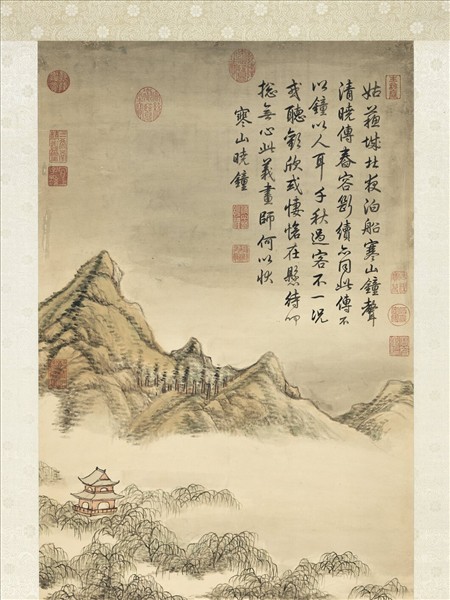 姑蘓城北夜泊船寒山鐘聲
清曉傳舂容斷續亦同此傳不
以鐘以人耳千秋過客不一況
或聽歡欣或悽愴在懸待叩
捴無心此義畫師何以狀
寒山曉鐘